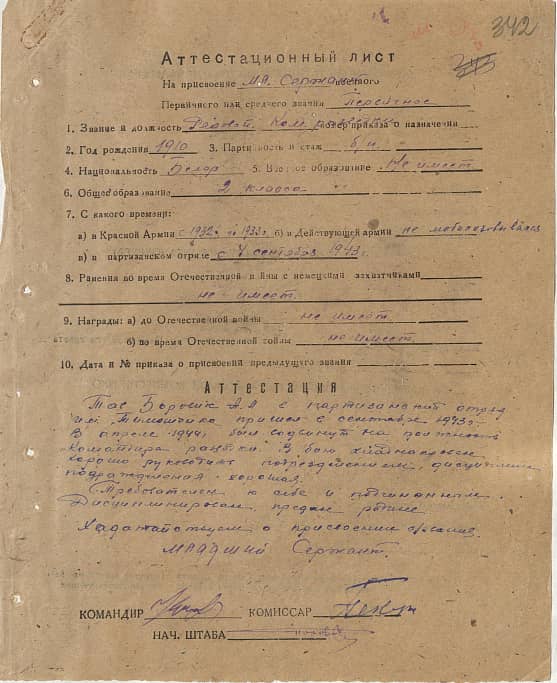 342
Аттестационный лист
На присвоение Мл. Сержант военного
Первичного или среднего звания Первичное
1. Звание и должность Рядовой, Ком. номер приказа о назначении
2. Год рождения 1910 3. Партийность и стаж б/п
4. Национальность Белор. 5. Военное образование Не имеет
6. Общее образование 2 класса
7. С какого времени:
а) в Красной Армии с 1932 по 1933 г. б) в Действующей армии не
в) в партизанском отряде с 7 сентября 1943 г.
8. Ранения во время Отечественной войны с немецкими захватчиками
не имеет
9. Награды: а) до Отечественной войны не имеет
б) во время Отечественной войны не имеет
10. Дата и № приказа о присвоении предыдущего звания
Аттестация
Тов. в партизанский отряд
им. пришел в сентябре 1943 г.
В апреле 1944 г. был на должность
Командира В бою
хорошо руководит подразделением, дисциплина
подразделения - хорошая.
Требователен к себе и подчиненным.
Дисциплинирован, предан родине
Ходатайствуем о присвоении звания
Младший Сержант.
КОМАНДИР КОМИССАР
НАЧ. ШТАБА